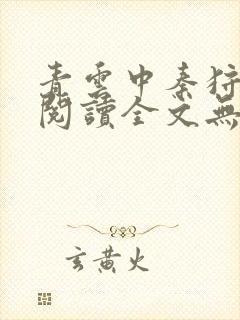 青雲中秦狩
閱讀全文無
玄黃火